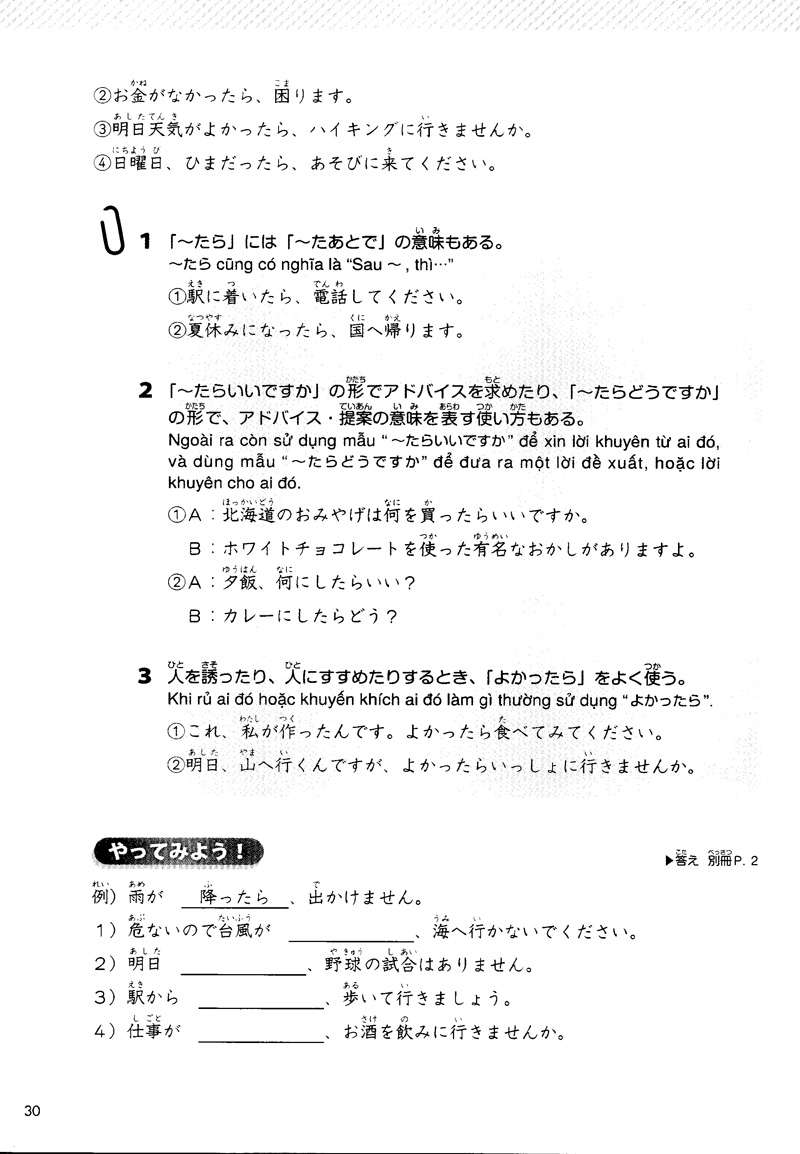 ②お金がなかったら、困ります。
③明日天気がよかったら、ハイキングに行きませんか。
④日曜日、ひまだったら、あそびに来てください。
1 「～たら」には「～たあとで」の意味もある。
～たら cũng có nghĩa là “Sau ～ , thì…”
①駅に着いたら、電話してください。
②夏休みになったら、国へ帰ります。
2 「～たらいいですか」の形でアドバイスを求めたり、「～たらどうですか」
の形で、アドバイス・提案の意味を表す使い方もある。
Ngoài ra còn sử dụng mẫu “ ～たらいいですか” để xin lời khuyên từ ai đó,
và dùng mẫu “ ～たらどうですか” để đưa ra một lời đề xuất, hoặc lời
khuyên cho ai đó.
①A：北海道のおみやげは何を買ったらいいですか。
B：ホワイトチョコレートを使った有名なおかしがありますよ。
②A：夕飯、何にしたらいい？
B：カレーにしたらどう？
3 人を誘ったり、人にすすめたりするとき、「よかったら」をよく使う。
Khi rủ ai đó hoặc khuyến khích ai đó làm gì thường sử dụng “よかったら”.
①これ、私が作ったんです。よかったら食べてみてください。
②明日、山へ行くんですが、よかったらいっしょに行きませんか。
やってみよう！
▶答え 別冊P. 2
例）雨が 降ったら 、出かけません。
1）危ないので台風が ____________ 、海へ行かないでください。
2）明日 ____________ 、野球の試合はありません。
3）駅から ____________ 、歩いて行きましょう。
4）仕事が ____________ 、お酒を飲みに行きませんか。
30